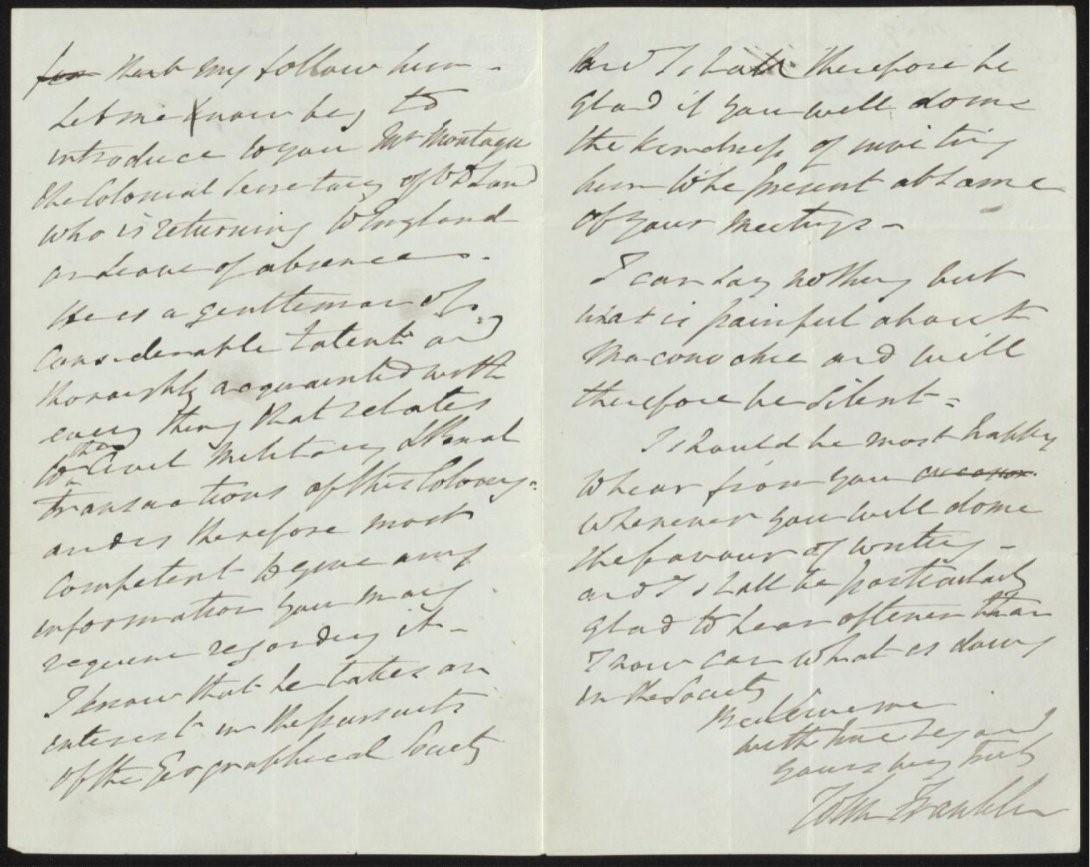 that may follow him -
Let me now beg to
introduce to you Mr Montagu
the Colonial Secretary of V D Land
who is returning to England
on leave of absence -
He is a gentleman of
considerable talent and
thoroughly acquainted with
every thing that relates
to the Civil Military & Penal
transactions of this Colony -
and is therefore most
competent to give any
information you may
require regarding it -
I know that he takes an
interest in the pursuits
of the Geographical Society
and I shall therefore be
glad if you will do me
the kindness of inviting
him to be present at some
of your meetings -
I can say nothing but
what is painful about
Maconochie and will
therefore be silent -
I should be most happy
to hear from you
whenever you will do me
the favour of writing -
and I shall be particularly
glad to hear oftener than
I now can what is doing
in the Society
Believe me
with true regard
yours very truly
John Franklin